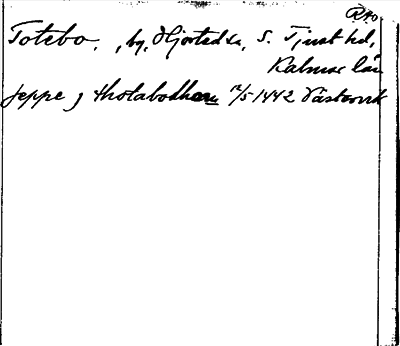 RAO
Totebo, by, Hjorted sn, S. Tjust hd,
Kalmar län
Jeppe j thotabodhom 12/5 1442 Västervik